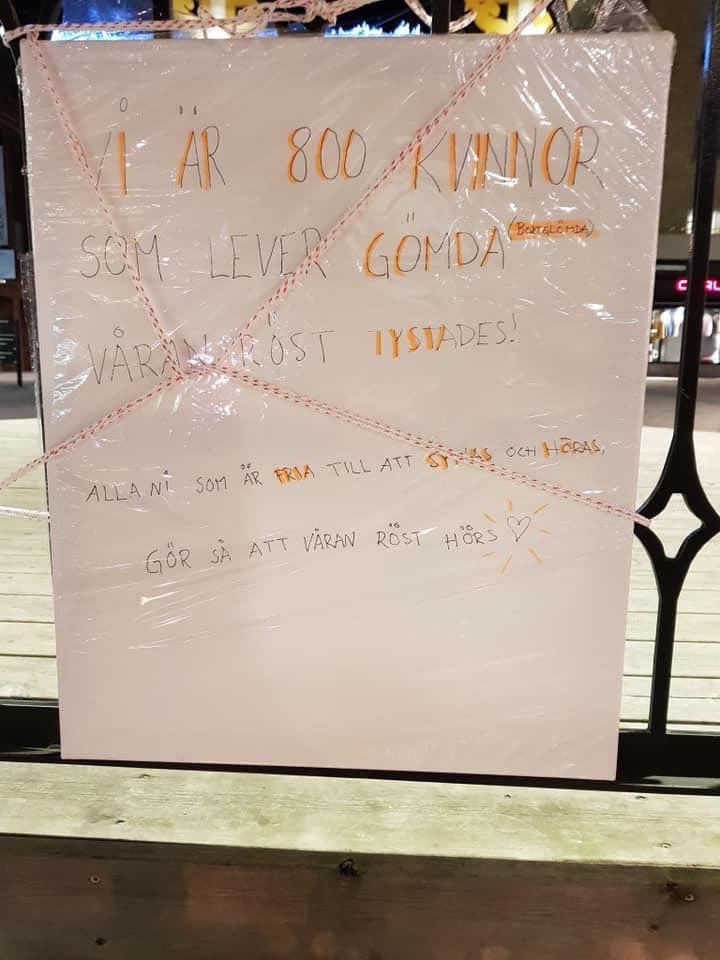 Vi ÄR 800 KVINNOR
SOM LEVER GÖMDA (BORTGLÖMDA)
VÅRAN RÖST TYSTADES!
ALLA Ni SOM ÄR FRIA TILL ATT SYNAS OCH HÖRAS,
GÖR SÅ ATT VÅRAN RÖST HÖRS